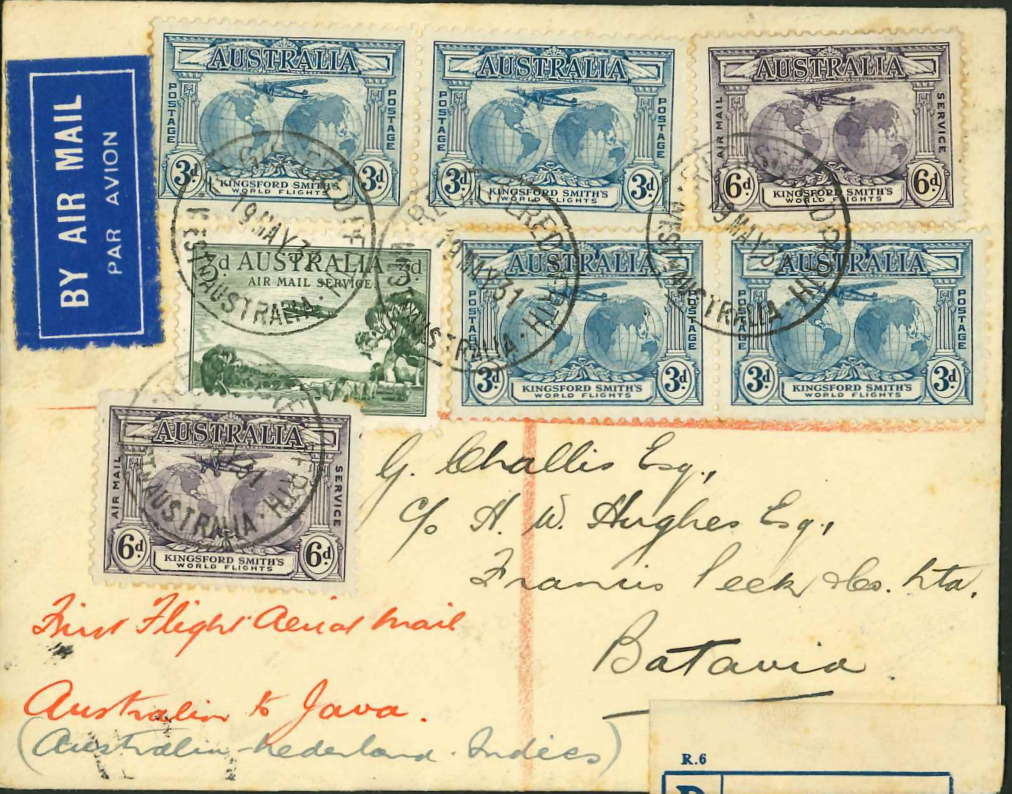 BY AIR MAIL
PAR AVION
AUSTRALIA
POSTAGE
POSTAGE
3d
3d
KINGSFORD SMITH'S
WORLD FLIGHTS
AUSTRALIA
POSTAGE
POSTAGE
3d
3d
KINGSFORD SMITH'S
WORLD FLIGHTS
AUSTRALIA
AIR MAIL
SERVICE
6d
6d
KINGSFORD SMITH'S
WORLD FLIGHTS
19 MAY 31
WEST AUSTRALIA
REGISTERED PERTH
19 MY 31
AUSTRALIA
19 MAY 31
AUSTRALIA
3d AUSTRALIA 3d
AIR MAIL SERVICE
AUSTRALIA
POSTAGE
POSTAGE
3d
3d
KINGSFORD SMITH'S
WORLD FLIGHTS
AUSTRALIA
POSTAGE
POSTAGE
3d
3d
KINGSFORD SMITH'S
WORLD FLIGHTS
AUSTRALIA
AIR MAIL
SERVICE
6d
6d
KINGSFORD SMITH'S
WORLD FLIGHTS
31
AUSTRALIA
G. Challis Esq.,
c/o H. W. Hughes Esq.,
Francis Peek & Co. Ltd.
Batavia
First Flight Aerial Mail
Australia to Java.
(Australia-Nederland. Indies)
R.6
R